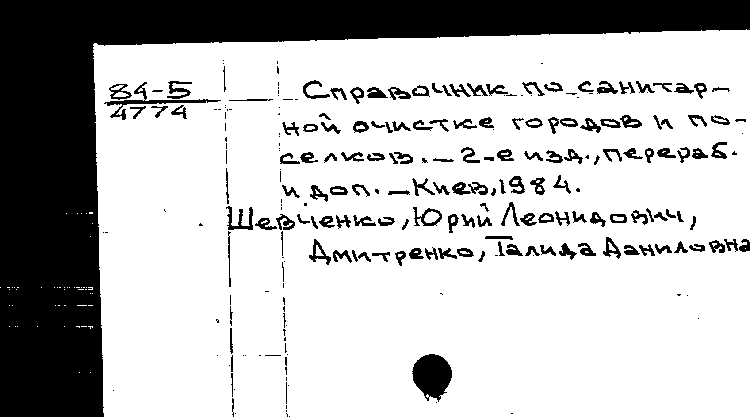 84-5
4774
Справочник по санитар-
ной очистке городов и по-
селков. – 2-е изд., перераб.
и доп. – Киев, 1984.
Шевченко, Юрий Леонидович,
Дмитренко, Галида Даниловна